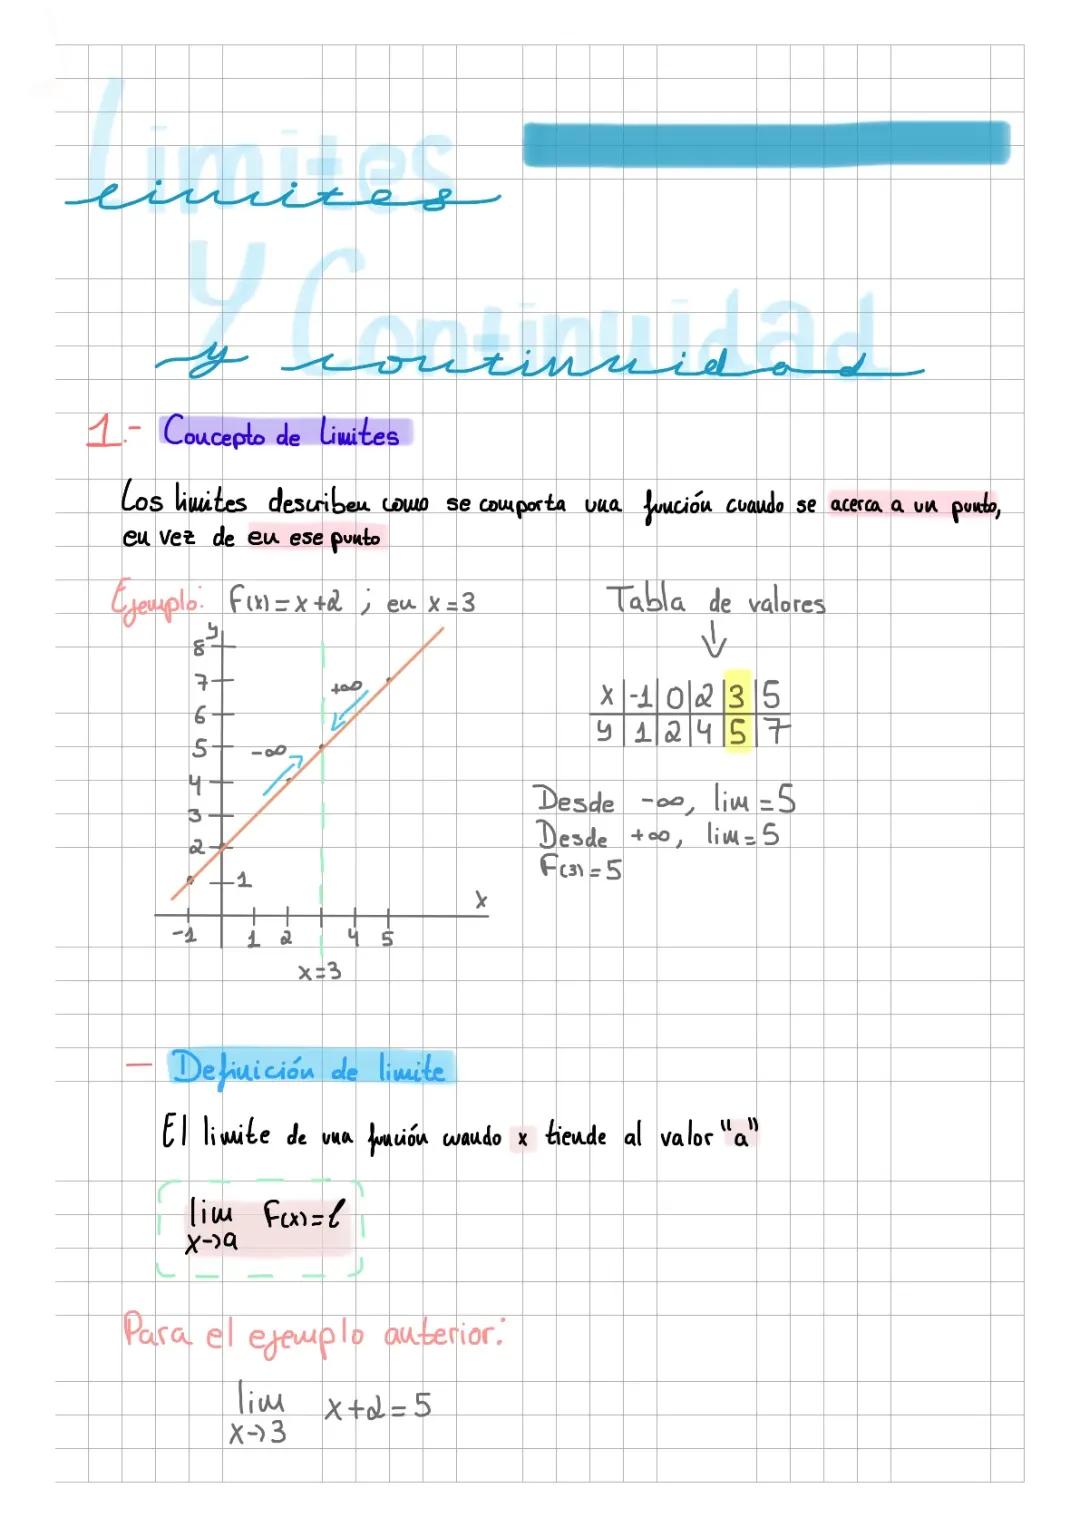 Limites
limites
Y Continuidad
y continuidad
1.- Concepto de limites
Los limites describen como se comporta una función cuando se acerca a un punto,
en vez de en ese punto
Ejemplo: F(x)=x+2 ; en x=3
Tabla de valores
↓
x|-1|0|2|3|5
y|1|2|4|5|7
Desde -∞, lim=5
Desde +∞, lim=5
F(3)=5
y
8
7
6
5
4
3
2
1
+∞
-∞
x
-1 1 2 4 5
x=3
— Definición de limite
El limite de una función cuando x tiende al valor "a"
lim F(x)=l
x->a
Para el ejemplo anterior:
lim x+2=5
x->3